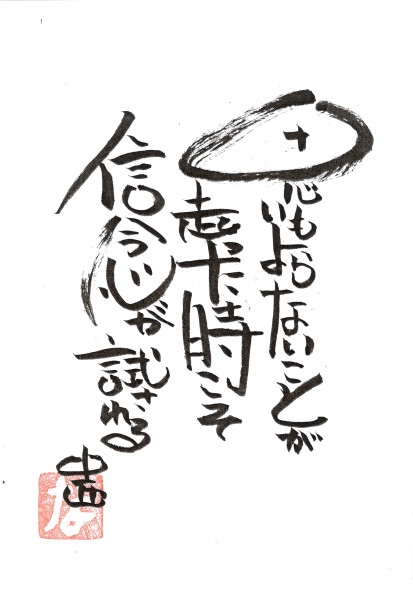 思いもよらないことが
起った時こそ
信念が試される
中西
な